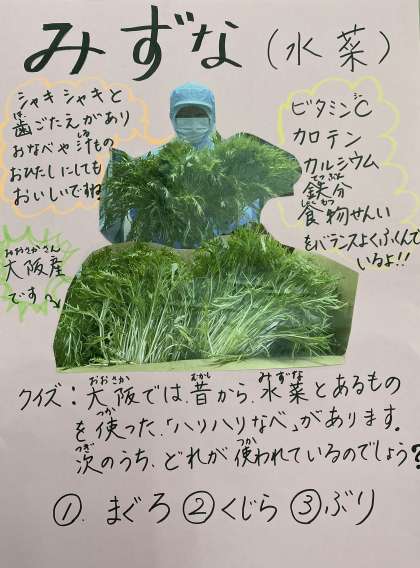 みずな(水菜)
シャキシャキと
歯ごたえがあり
おなべや汁もの
おひたしにしても
おいしいですね
ビタミンC
カロテン
カルシウム
鉄分
食物せんい
をバランスよくふくんで
いるよ!!
大阪産
です
クイズ:大阪では、昔から、水菜とあるもの
を使った、「ハリハリなべ」があります。
次のうち、どれが使われているのでしょう?
①.まぐろ ②くじら ③ぶり